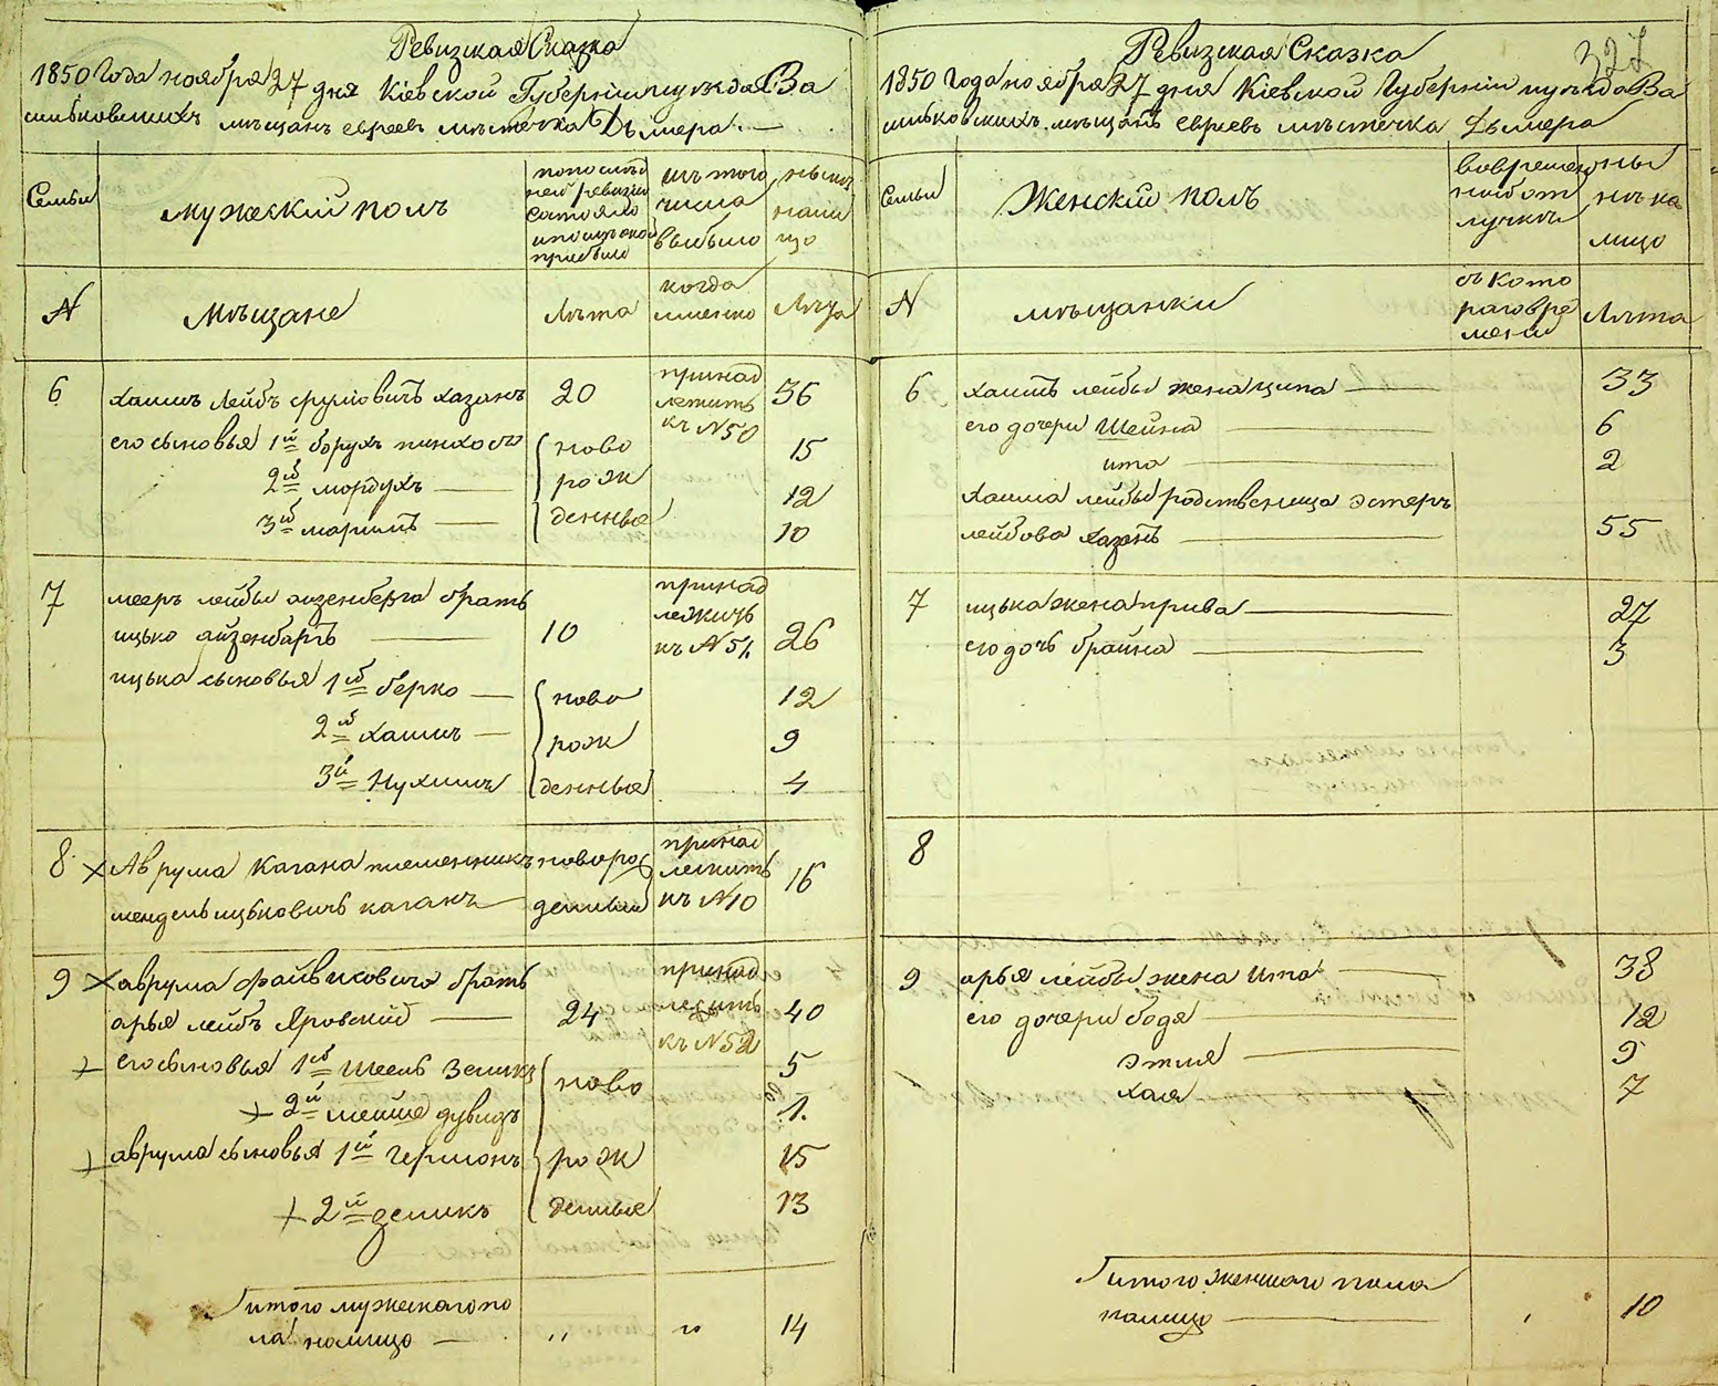 Ревизская Сказка
1850 Года ноября 27 дня Кіевской Губерніи и уезда Ва
сильковскихъ мѣщанъ евреевъ мѣстечка Дымера. —
Семьи
Мужескій полъ
по послѣд
ней ревизіи
состояло
и после оной
прибыло
изъ того
числа
выбыло
нынѣ
на ли
цо
№
Мѣщане
Лѣта
когда
именно
Лѣта
6
хаимъ Лейбъ сруліовичъ хазанъ
20
принад
лежитъ
къ №50
36
его сыновья 1й борухъ пинхосъ
ново
15
2й мордухъ —
рож
12
3й —
денные
10
7
мееръ лейбы айзенберга братъ
ицько айзенбергъ —
10
принад
лежитъ
къ №51.
26
ицька сыновья 1й берко —
ново
12
2й хаимъ —
рож
9
3й Нухимъ
денные
4
8
х Аврума Кагана племенникъ
мендель ицьковичъ каганъ
новоро
денный
принад
лежитъ
къ №10
16
9
х аврума файвиковича братъ
арья лейбъ Яровскій —
24
принад
лежитъ
къ №52
40
+ его сыновья 1й Шеель Зеликъ
ново
5
+ 2й мейше дувидъ
1.
+ аврума сыновья 1й Гершонъ
рож
15
+ 2й зеликъ
денные
13
итого мужескаго по
ла налицо —
〃
〃
14
Ревизская Сказка
327
1850 Года ноября 27 дня Кіевской Губерніи и уезда Ва
сильковскихъ мѣщанъ евреевъ мѣстечка Дымера
Семьи
Женскій полъ
во времен
ной от
лучкѣ
ны
нѣ на
лицо
№
мѣщанки
съ кото
раго вре
мени
Лѣта
6
хаимъ лейбы жена ципа —
33
его дочери Шейна —
6
ита —
2
хаима лейбы родственница эстеръ
лейбова хазанъ —
55
7
ицька жена прива —
27
его дочь брайна —
3
8
9
арья лейбы жена Ита —
38
его дочери бодя —
12
этля —
9
хая
7
итого женскаго пола
налицо —
10